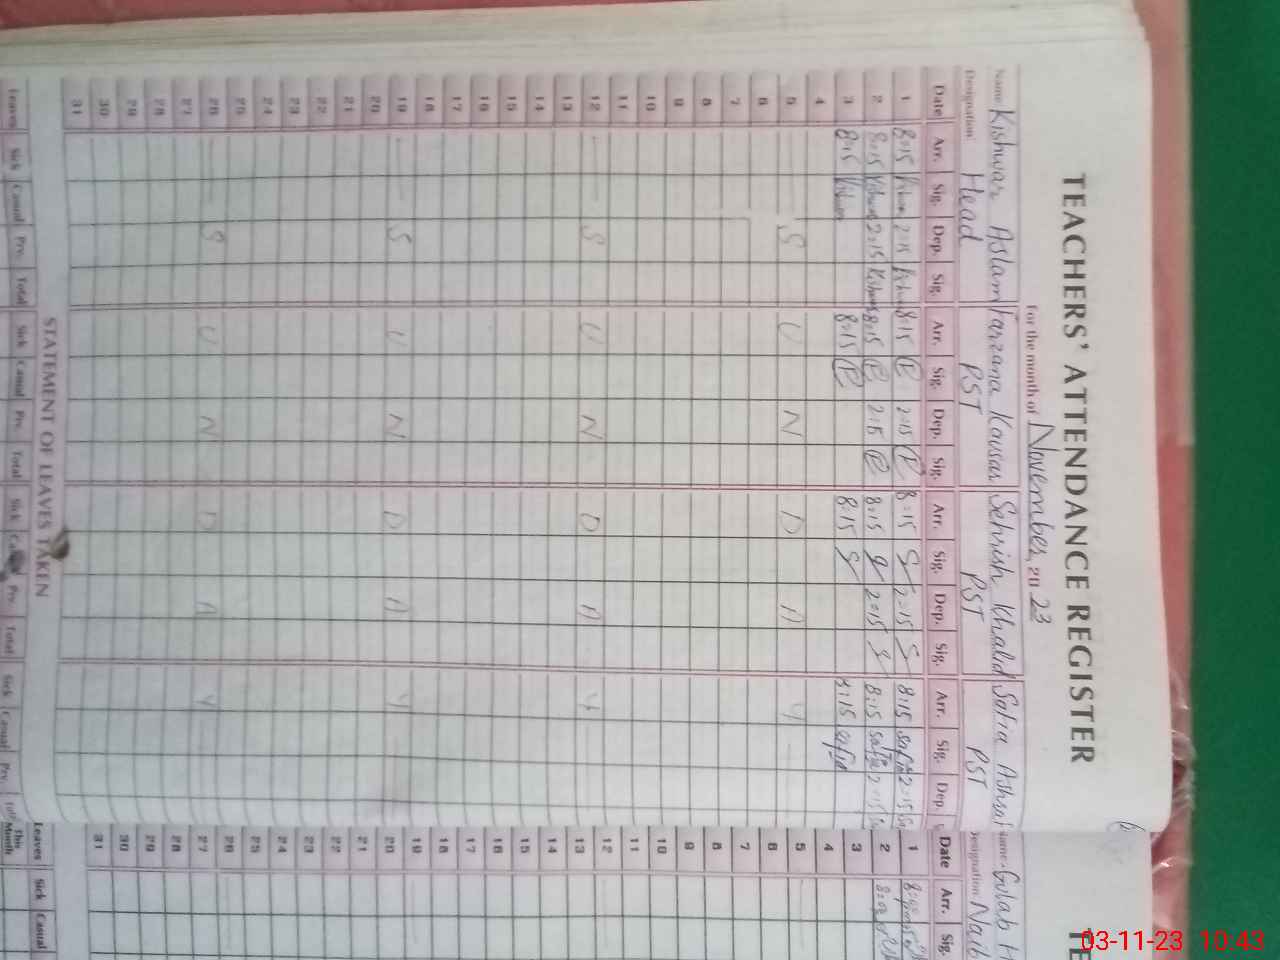 TEACHERS' ATTENDANCE REGISTER
For the month of November, 2023
Name Kishwar Aslam Farzana Kausar Sehrish Khalid Safia Ashraf
Designation Head PST PST PST
Date Arr. Sig. Dep. Sig. Arr. Sig. Dep. Sig. Arr. Sig. Dep. Sig. Arr. Sig. Dep.
1 8:15 2:15 8:15 2:15 8:15 2:15 8:15 Safia 2:15
2 8:15 Kishwar 2:15 Kishwar 8:15 2:15 8:15 2:15 8:15 Safia 2:15
3 8:15 Kishwar 8:15 8:15 8:15 Safia
4
5 S U N D A Y
6
7
8
9
10
11
12 S U N D A Y
13
14
15
16
17
18
19 S U N D A Y
20
21
22
23
24
25
26 S U N D A Y
27
28
29
30
31
STATEMENT OF LEAVES TAKEN
Leaves Sick Casual Prv. Total Sick Casual Prv. Total Sick Casual Prv. Total Sick Casual Prv. Total
TE
Name Gulab H
Designation Naib
Date Arr. Sig.
1
2
3
4
5
6
7
8
9
10
11
12
13
14
15
16
17
18
19
20
21
22
23
24
25
26
27
28
29
30
31
Leaves Sick Casual
This Month
03-11-23 10:43